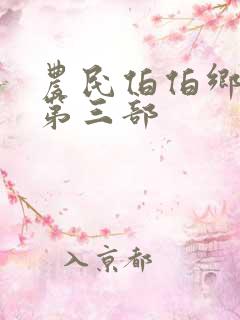 農民伯伯鄉
第三部
入京都